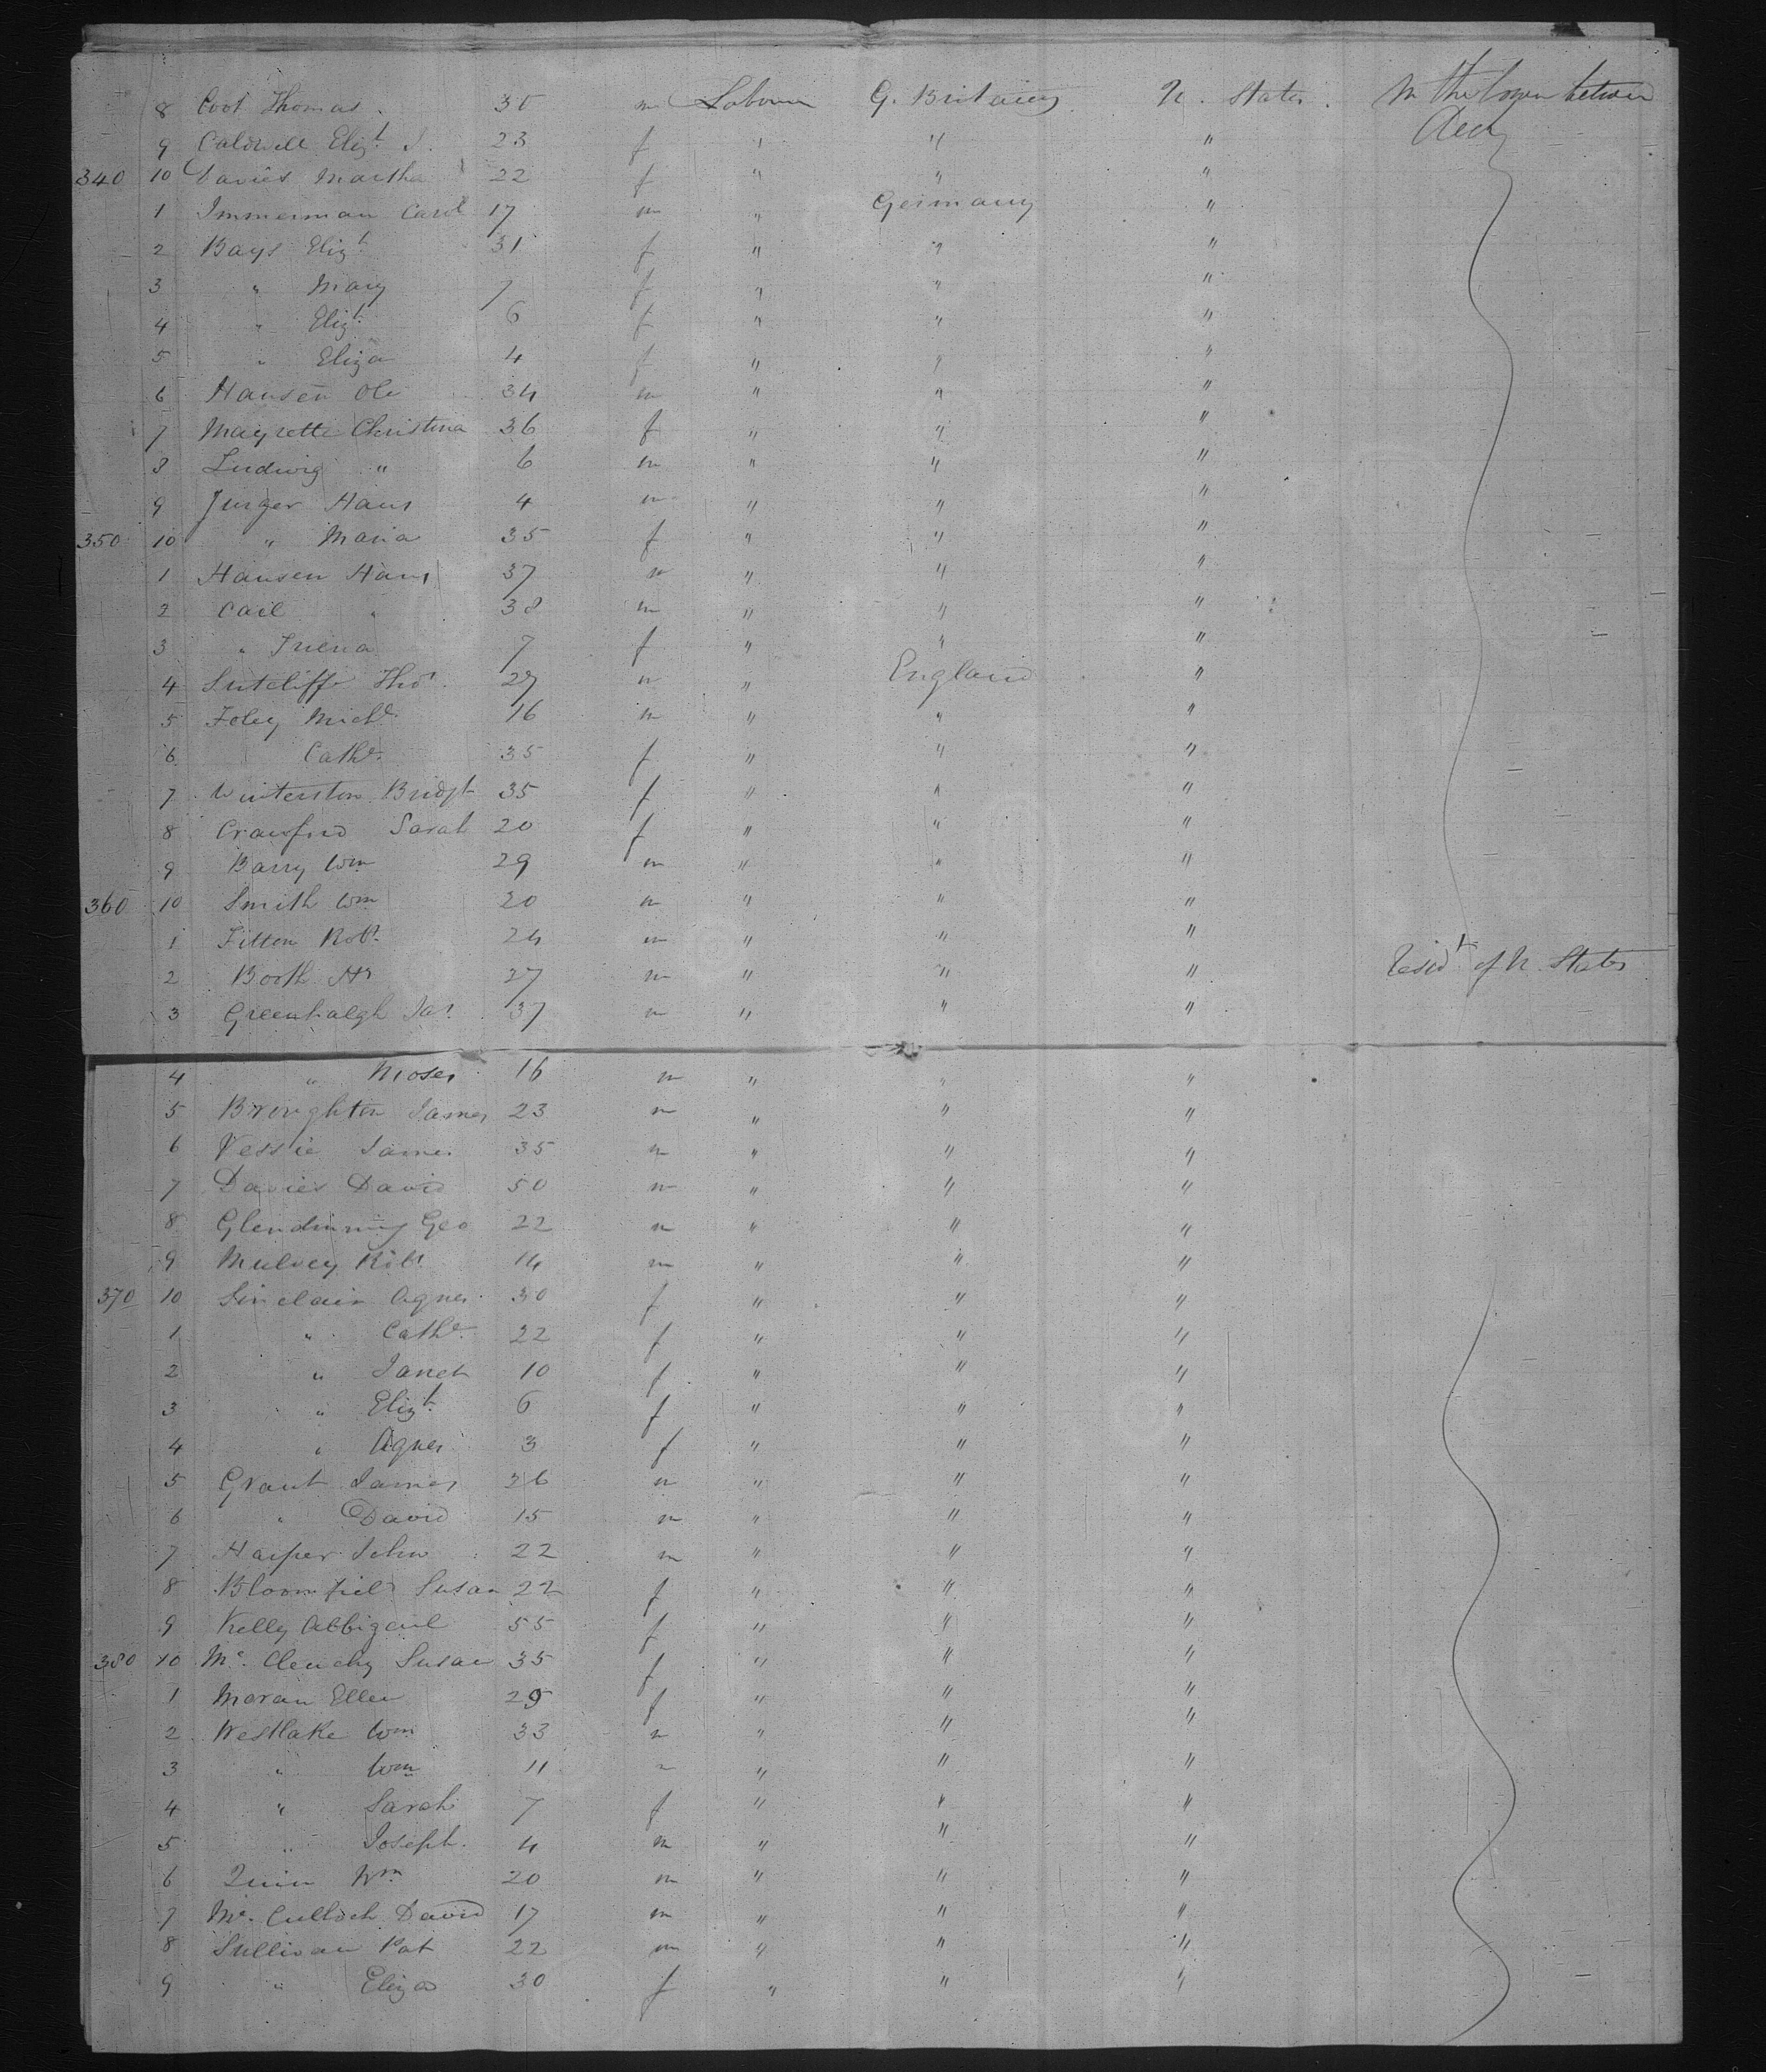 8 Coot Thomas 30 m Labourer G. Britain U. States In the lower between
9 Caldwell Elizt. J. 23 f " " " Deck
340 10 Davies Martha 22 f " " "
1 Immerman Carl 17 m " Germany "
2 Bays Elizt. 31 f " " "
3 " Mary 7 f " " "
4 " Elizt. 6 f " " "
5 " Eliza 4 f " " "
6 Hansen Ole 34 m " " "
7 Mayrette Christina 36 f " " "
8 Ludwig " 6 m " " "
9 Jurger Hans 4 m " " "
350 10 " Maria 35 f " " "
1 Hansen Hans 37 m " " "
2 Cail " 38 m " " "
3 " Friena 7 f " " "
4 Sutcliffe Thos. 27 m " England "
5 Foley Michl. 16 m " " "
6 Cathe. 35 f " " "
7 Winterston Bridgt 35 f " " "
8 Crawford Sarah 20 f " " "
9 Barry Wm 29 m " " "
360 10 Smith Wm 20 m " " "
1 Fitton Robt. 24 m " " "
2 Booth Hy 27 m " " " Resdt of U. States
3 Greenhalgh Jas. 37 m " " "
4 " Moses 16 m " " "
5 Broughton James 23 m " " "
6 Vessie James 35 m " " "
7 Davies David 50 m " " "
8 Glendinning Geo 22 m " " "
9 Mulvey Robt 14 m " " "
370 10 Sinclair Agnes 30 f " " "
1 " Cathe. 22 f " " "
2 " Janet 10 f " " "
3 " Elizt. 6 f " " "
4 " Agnes 3 f " " "
5 Grant James 26 m " " "
6 " David 15 m " " "
7 Harper John 22 m " " "
8 Bloomfield Susan 22 f " " "
9 Kelly Abbigail 55 f " " "
380 10 Mc. Clenchy Susan 35 f " " "
1 Moran Ellen 29 f " " "
2 Westlake Wm 33 m " " "
3 " Wm 11 m " " "
4 " Sarah 7 f " " "
5 " Joseph. 4 m " " "
6 Quin Wm 20 m " " "
7 Mc. Culloch David 17 m " " "
8 Sullivan Pat 22 m " " "
9 " Eliza 30 f " " "